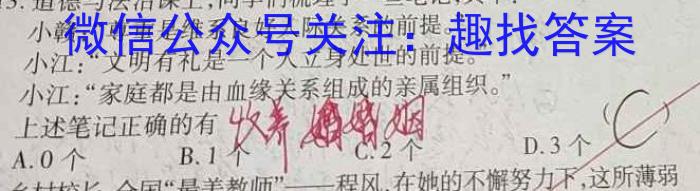 13. 道德与法治课上,同学们梳理了一些笔记,其中:
微信公众号关注：趣找答案
小江:“文明有礼是一个人立身处世的前提。”
小江:“家庭都是由血缘关系组成的亲属组织。”
上述笔记正确的有 收养 婚姻 (C)
A.0 个 B.1 个 C.2 个 D.3 个
全国“最美教师”——程风,在她的不懈努力下,这所薄弱